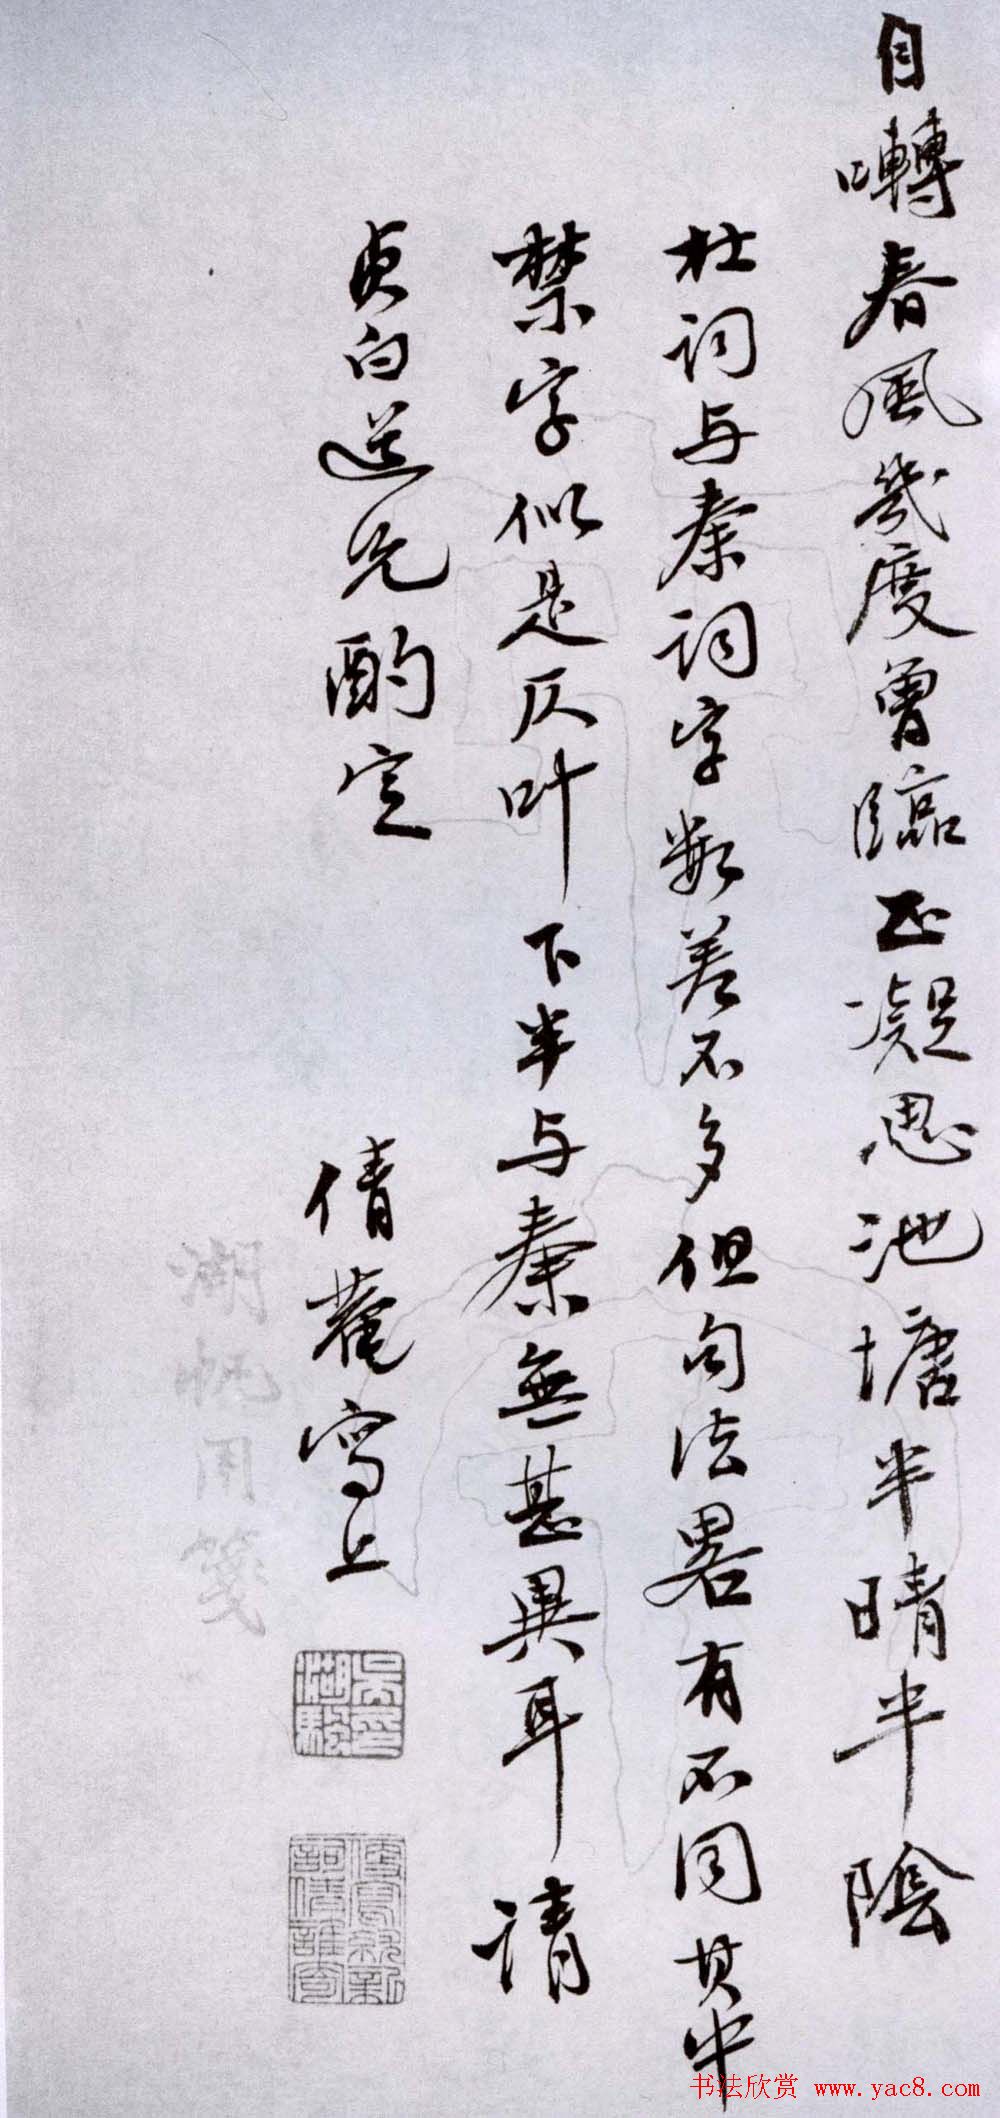 自囀春風幾度曾臨正凝思池塘半晴半陰
杜詞与秦詞字数差不多但句法畧有不同其中
禁字似是仄叶下半与秦無甚異耳請
貞白道兄酌定
倩菴寫上
吳湖颿印
湖帆用箋
书法欣赏 www.yac8.com